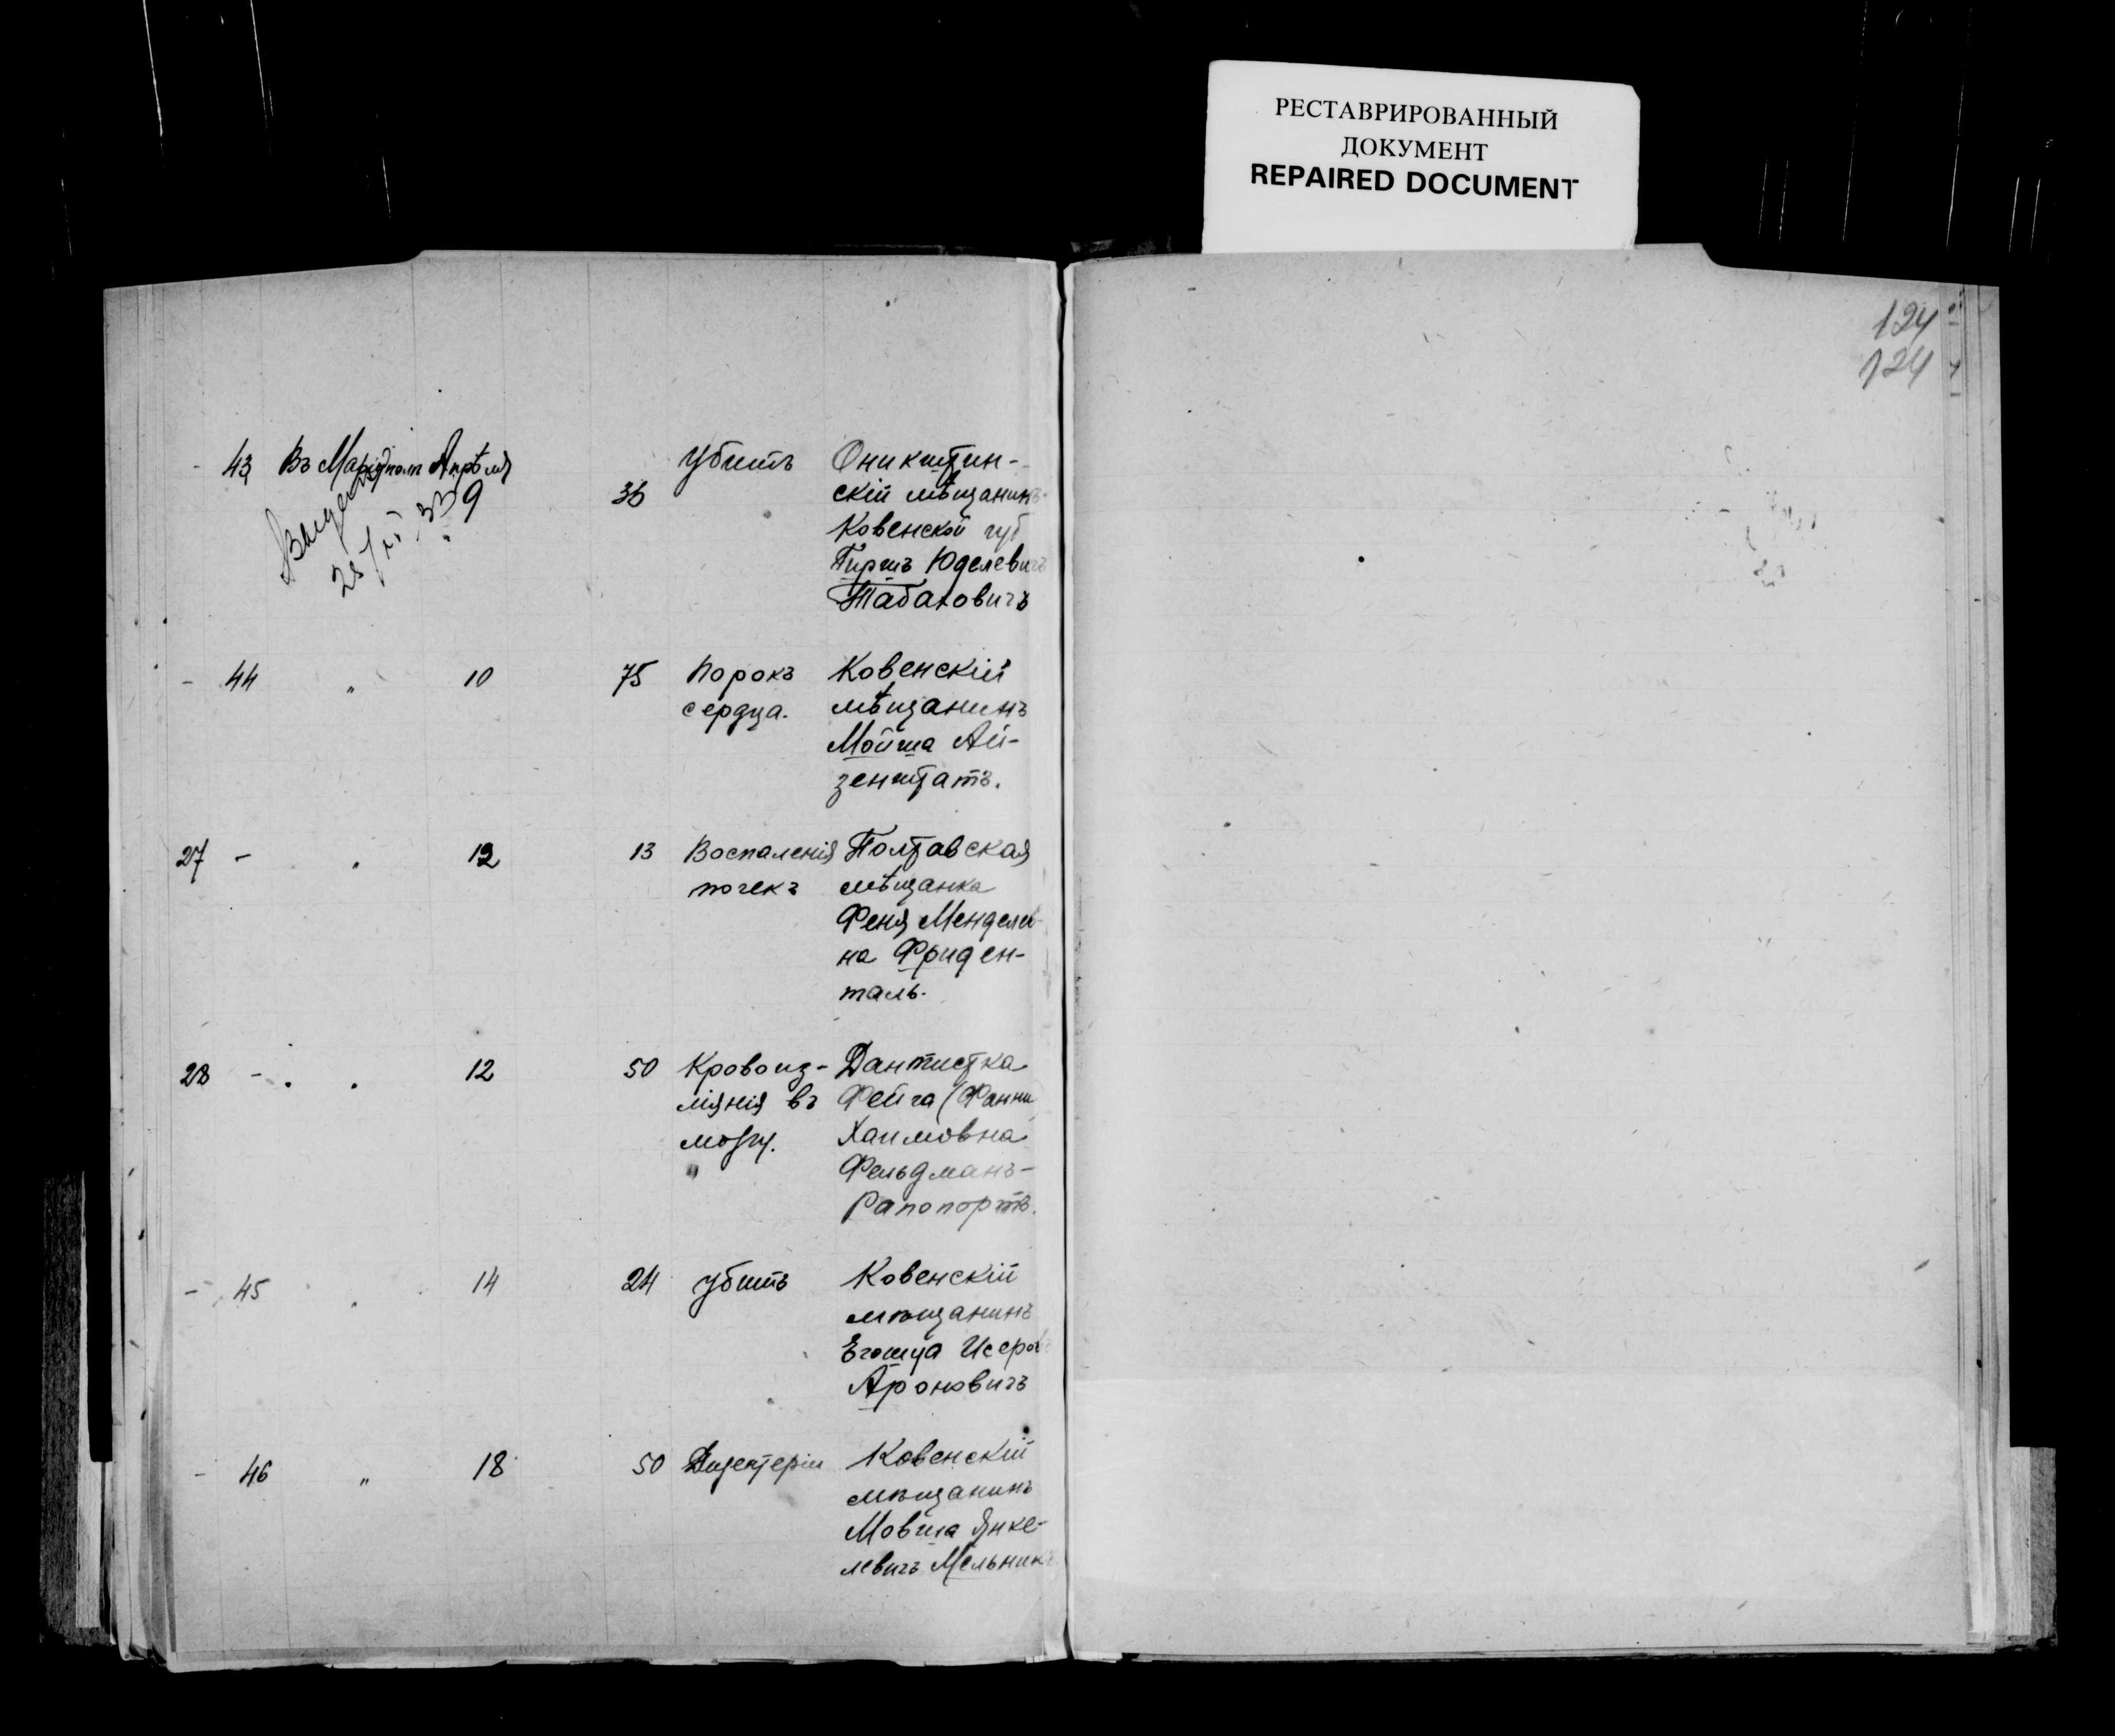 РЕСТАВРИРОВАННЫЙ
ДОКУМЕНТ
REPAIRED DOCUMENT
124
124
- 43 Въ Апрѣля 9 36 Убитъ Оникштин-
скій мѣщанинъ
Ковенской губ
Гиршъ Юделевичъ
Табаховичъ
- 44 „ 10 75 Порокъ Ковенскій
сердца. мѣщанинъ
Мойша Ай-
зенштатъ.
27 - „ 12 13 Воспаленія Полтавская
почекъ мѣщанка
Феня Менделев-
на Фриден-
таль.
28 - „ 12 50 Кровоиз- Дантистка
ліянія въ Фейга (Фанни
мозгу. Хаимовна
Фельдманъ-
Рапопортъ.
- 45 „ 14 24 убитъ Ковенскій
мѣщанинъ
Егошуа Исеров
Ароновичъ
- 46 „ 18 50 Ковенскій
мѣщанинъ
Мовша Янке-
левичъ Мельникъ